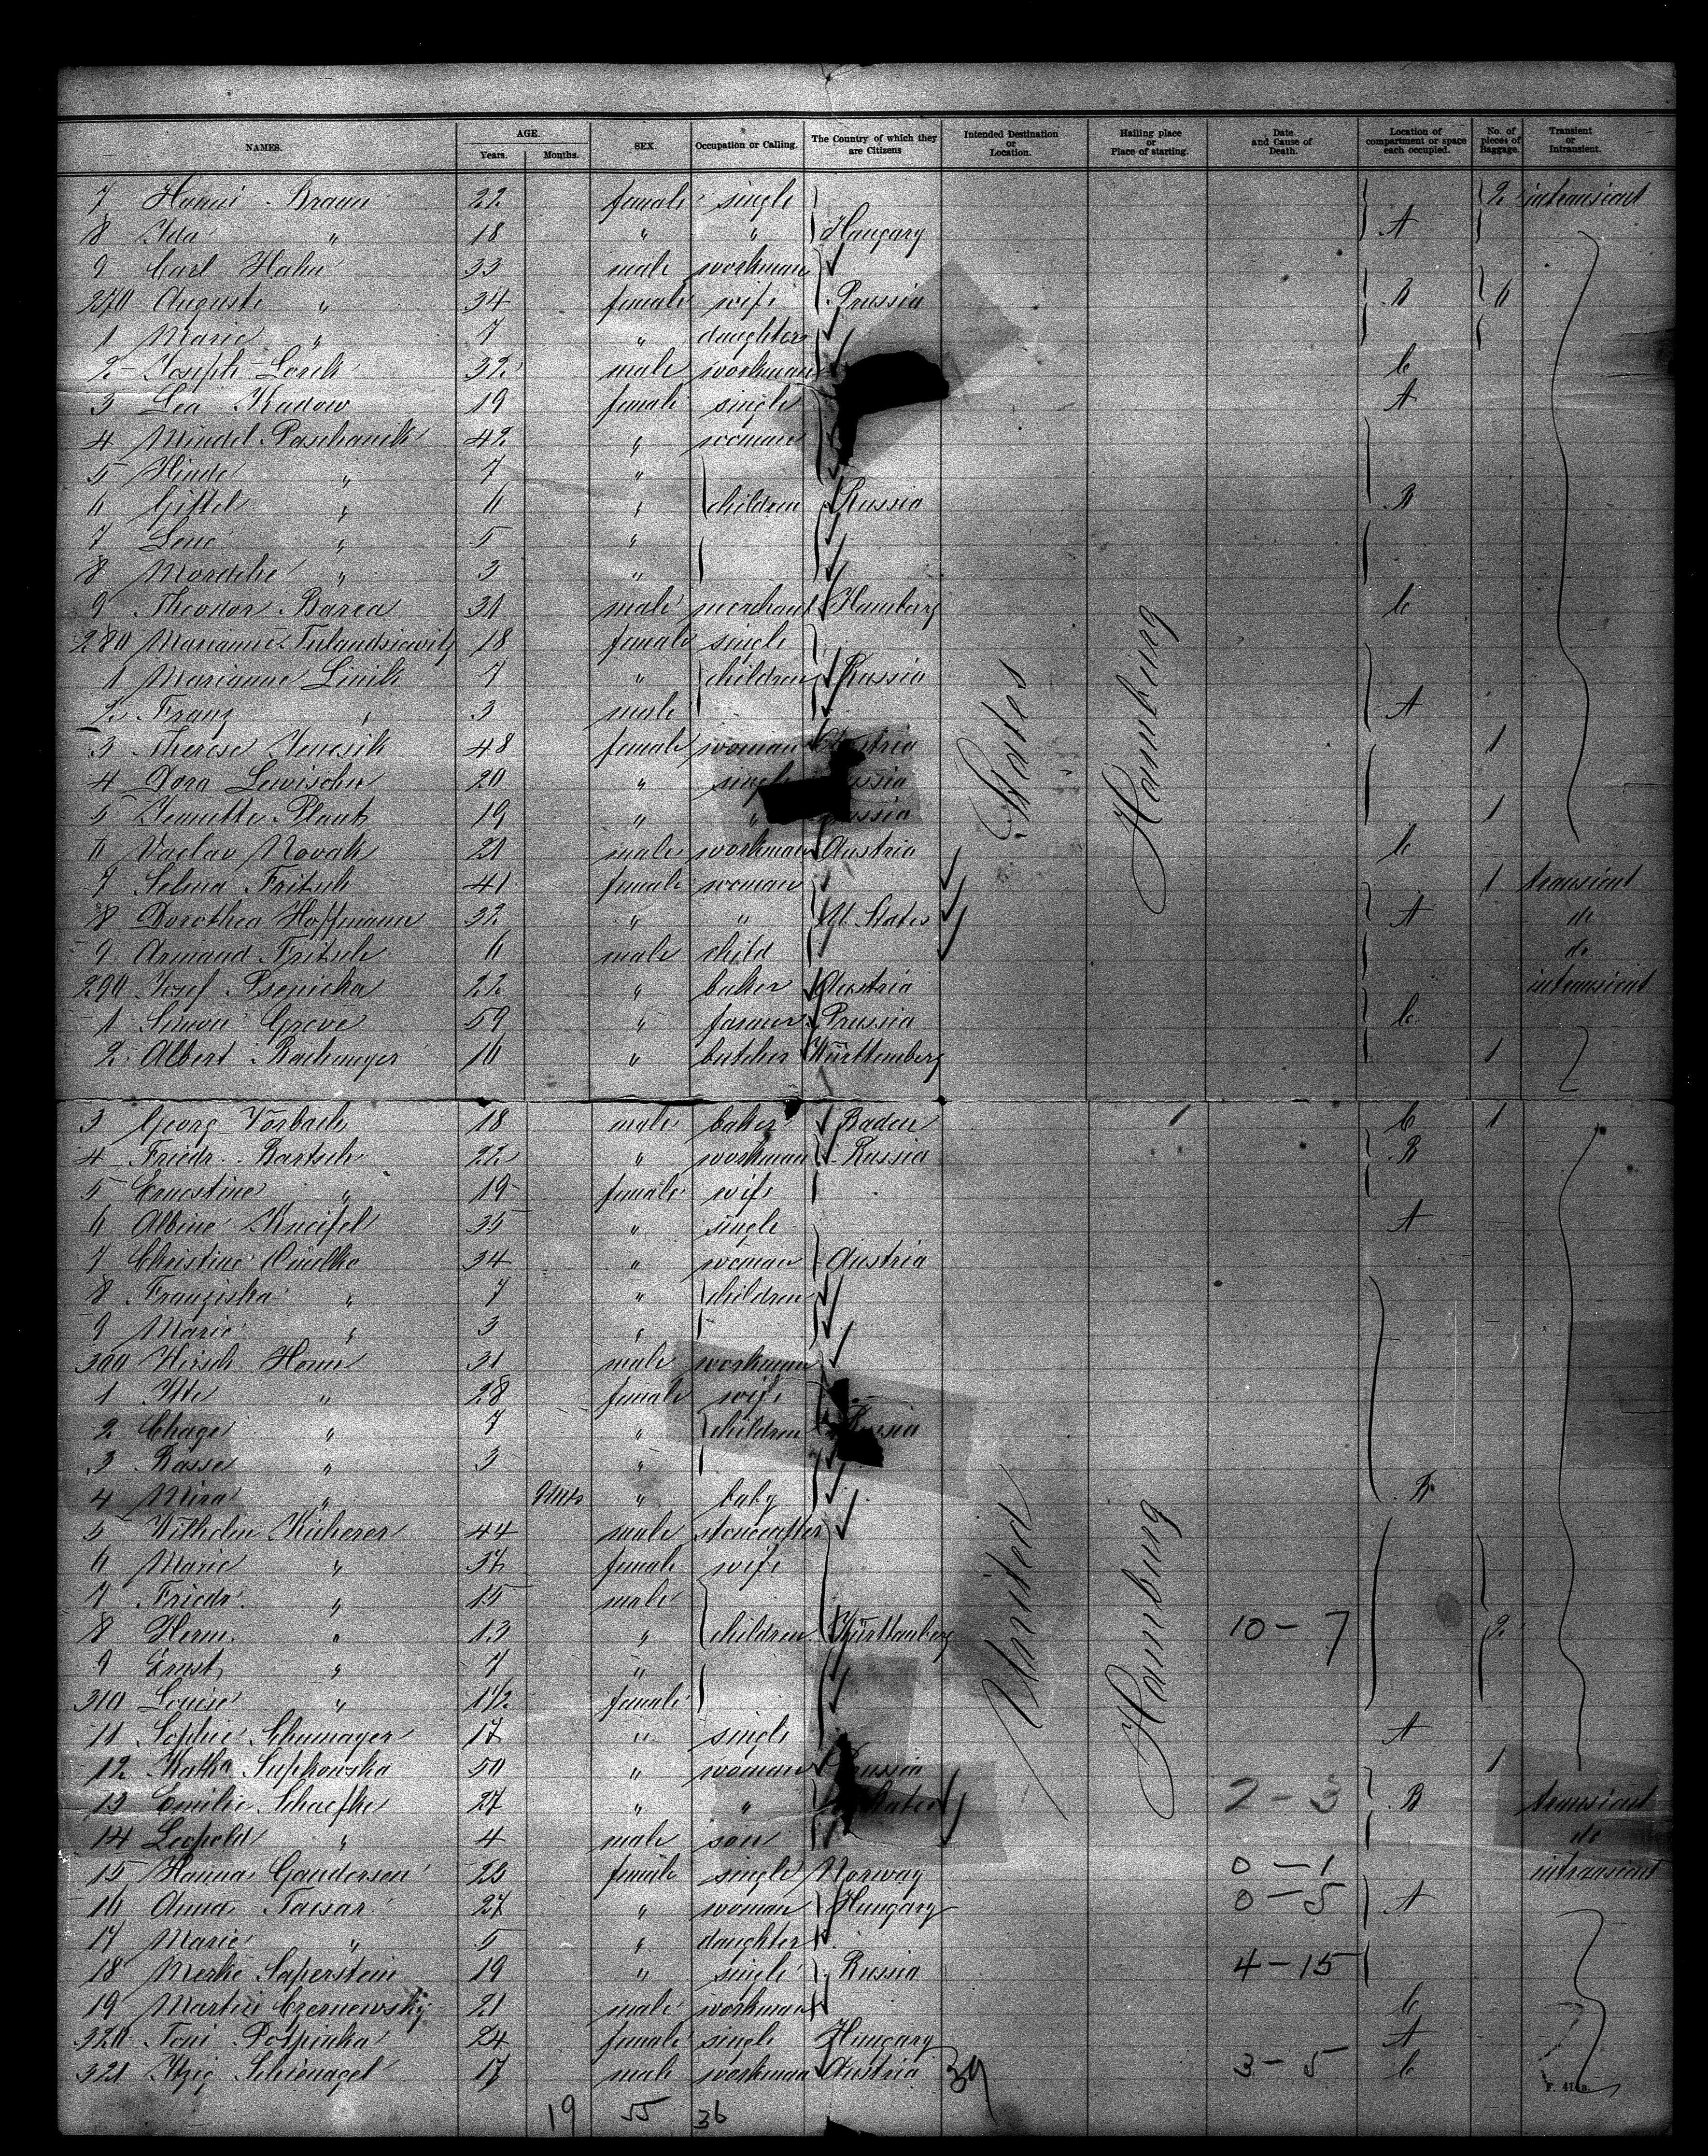 NAMES. AGE. Years. Months. SEX. Occupation or Calling. The Country of which they are Citizens Intended Destination or Location. Hailing place or Place of starting. Date and Cause of Death. Location of compartment or space each occupied. No. of pieces of Baggage. Transient or Intransient.
7 Hanni Braun 22 female single 2 intransient
8 Ida " 18 " " Hungary A
9 Carl Hahn 33 male workman
270 Auguste " 34 female wife Prussia B 6
1 Marie " 7 " daughter
2 Joseph Lorek 32 male workman C
3 Lea Kadow 19 female single A
4 Mindel Paschanik 42 " woman
5 Hinde " 7 "
6 Gittel " 6 " children Russia B
7 Lene " 5 "
8 Mordche " 3 "
9 Theodor Barca 31 male merchant Hamburg C
280 Marianne 18 female single
1 Marianne Linik 7 " children Russia
2 Franz " 3 male A
3 Therese 48 female woman Austria 1
4 Dora Lewischn 20 " single
5 Jeanette Plaut 19 " " 1
6 Vaclav Novak 21 male workman Austria C
7 Selma Fritsch 41 female woman 1 transient
8 Dorothea Hoffmann 32 " " U. States A do
9 Armand Fritsch 6 male child do
290 Josef Psenicka 22 " baker Austria intransient
1 Simon Greve 59 " farmer Prussia C
2 Albert 16 " butcher Württemberg 1
States Hamburg
3 Georg Vörbach 18 male baker Baden C 1
4 Friedr. Bartsch 22 " workman Russia B
5 Ernestine " 19 female wife
6 Albine Kneifel 35 " single A
7 Christine 34 " woman Austria
8 Franziska " 7 " children
9 Marie " 3 "
300 Hirsch Horn 31 male workman
1 Itte " 28 female wife
2 Chage " 7 " children Russia
3 Rasse " 3 "
4 Mira " 9 mts " baby B
5 Wilhelm Kicherer 44 male stonecutter
6 Marie " female wife
7 Friedr. " 15 male
8 Herm. " 13 " children Württemberg 10-7 2
9 Ernst " 7 "
310 Louise " 1 1/2 female
11 Sophie Schumayer 17 " single A
12 Kath. Supkouska 50 " woman 1
13 Emilie Schaefke 27 " " States 2-3 B transient
14 Leopold " 4 male son do
15 Hanna Gundersen 23 female single Norway 0-1 intransient
16 Anna Tacsar 27 " woman Hungary 0-5 A
17 Marie " 5 " daughter
18 Merke Saperstein 19 " single Russia 4-15
19 Martin Czernewsky 21 male workman C
320 Toni Pospinka 24 female single Hungary A
321 Itzig Schönagel 17 male workman Austria 39 3-5 C
United Hamburg
19 55 36